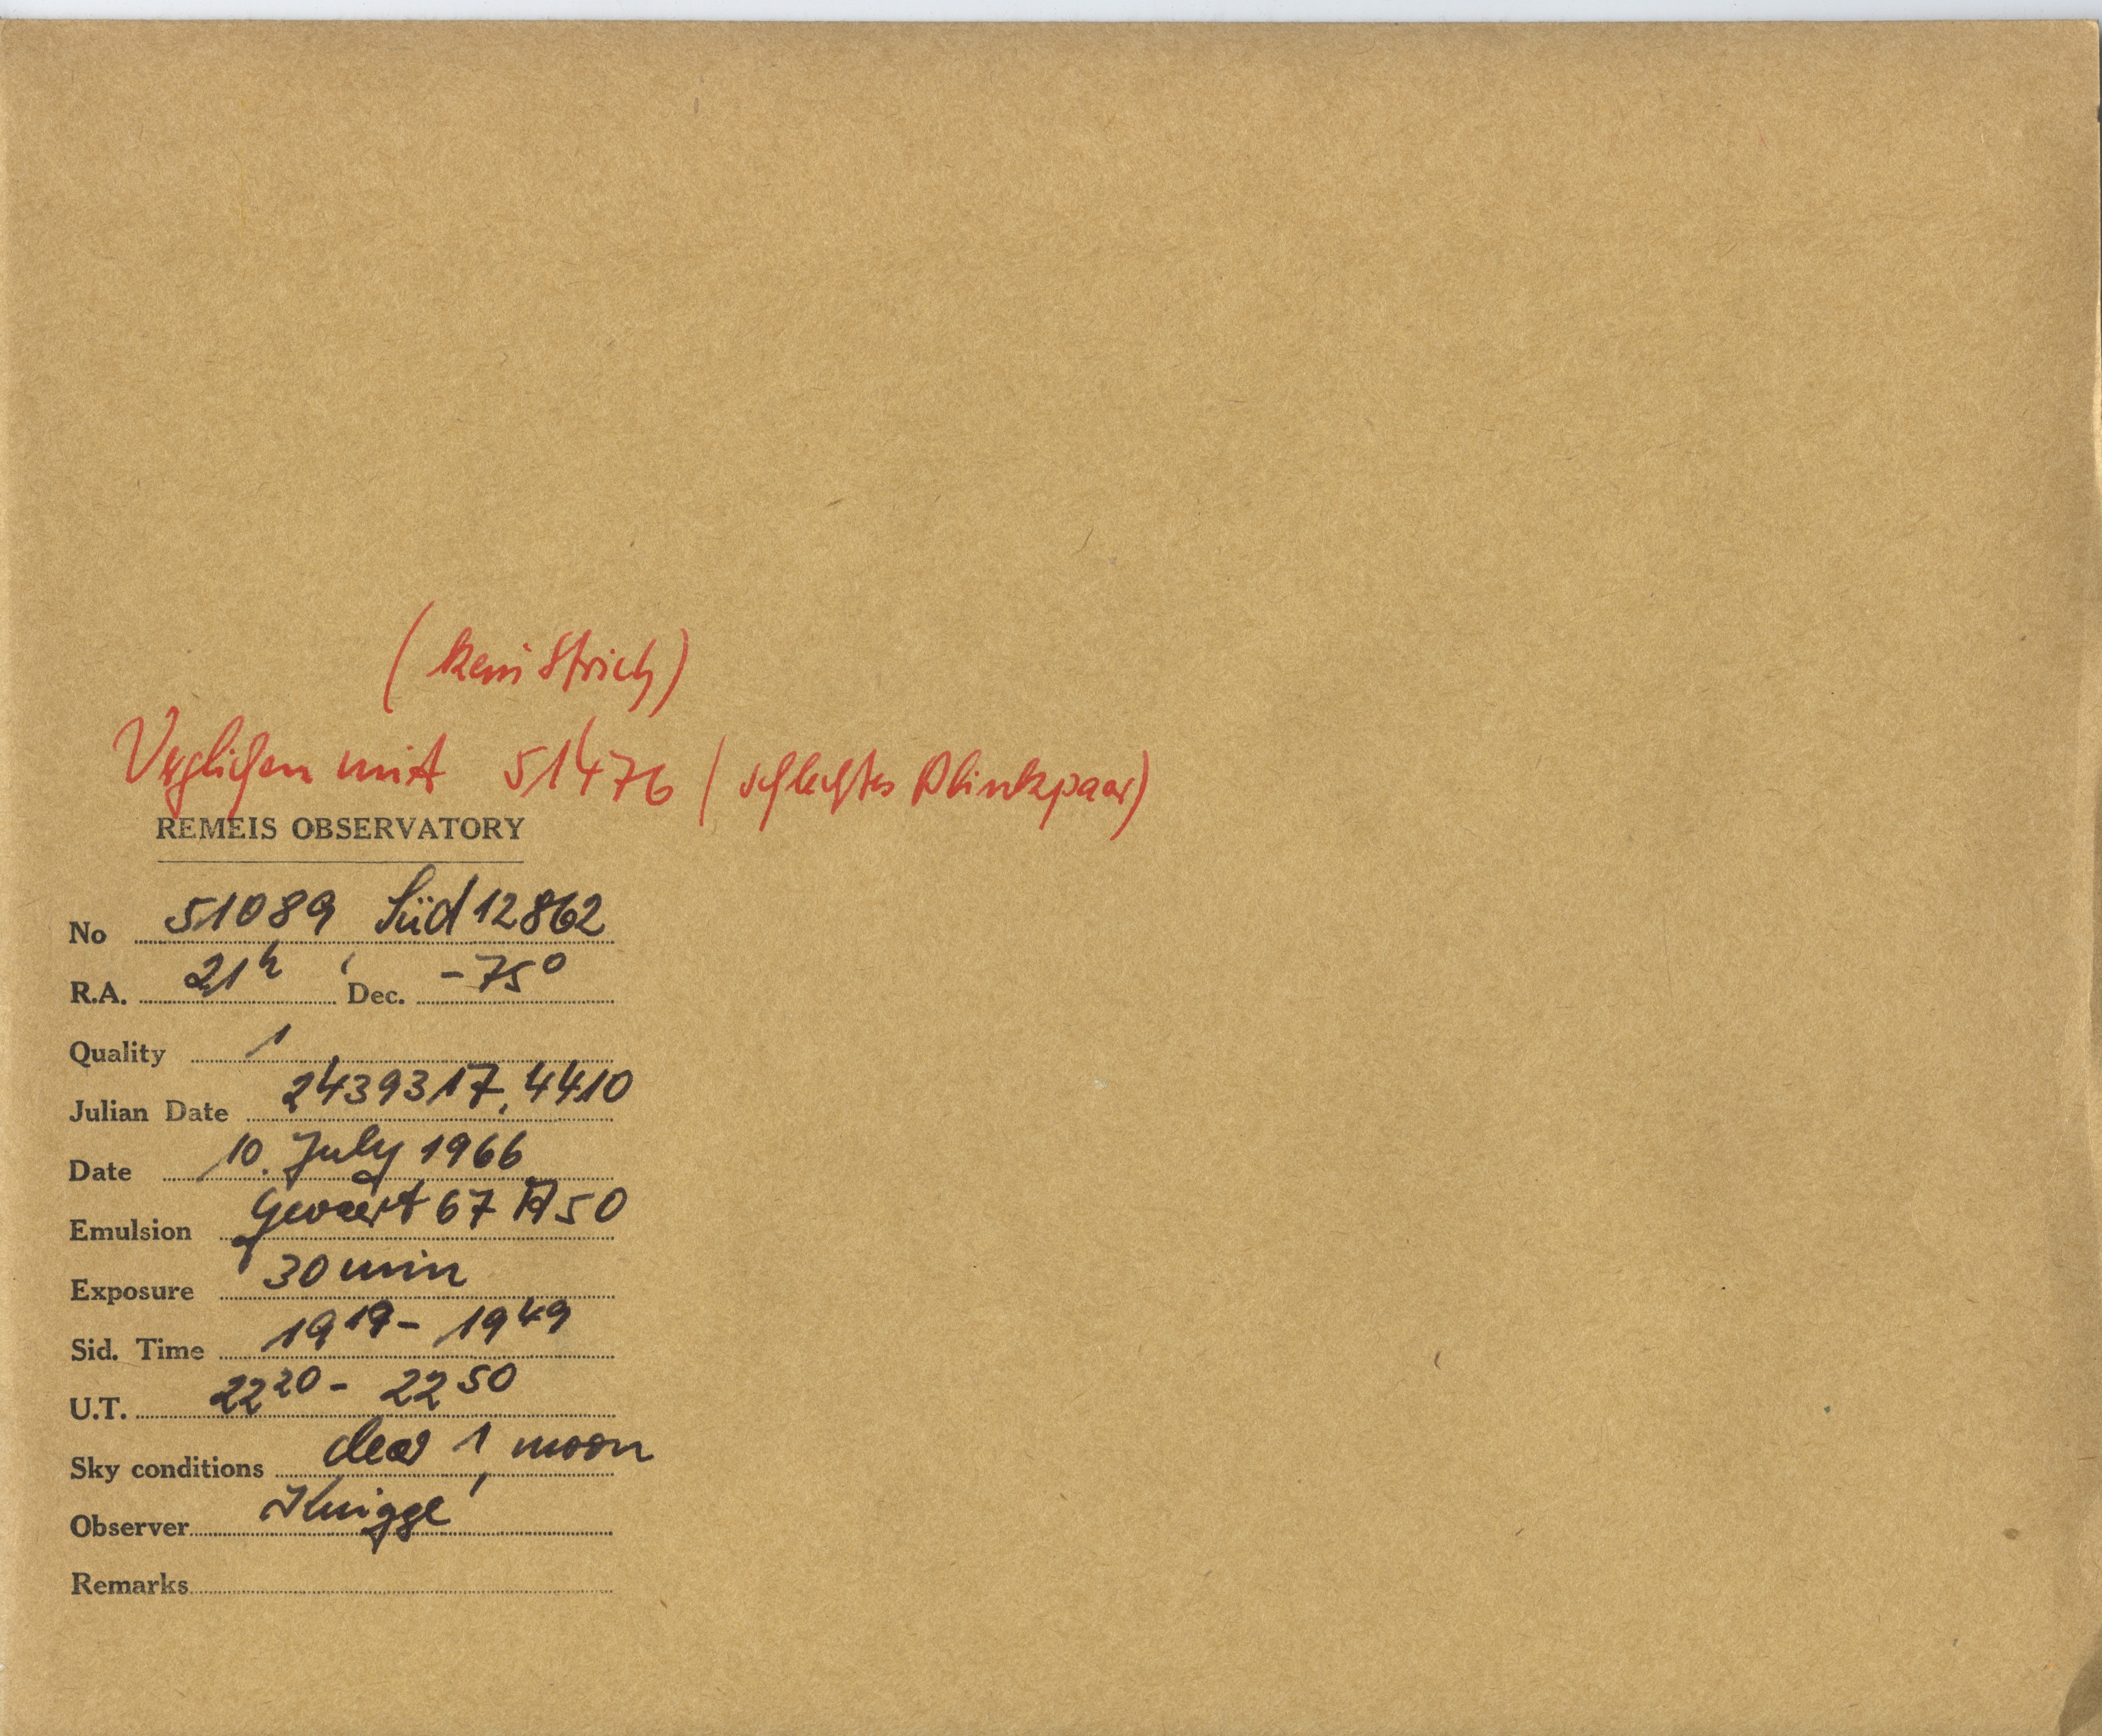 (kein Strich)
Verglichen mit 51476 (schlechtes Blinkpaar)
REMEIS OBSERVATORY
No 51089 Süd 12862
R.A. 21h , Dec. -75°
Quality 1
Julian Date 2439317,4410
Date 10. July 1966
Emulsion Gevaert 67 A 50
Exposure 30 min
Sid. Time 19 19 - 19 49
U.T. 22 20 - 22 50
Sky conditions clear 1, moon
Observer Knigge
Remarks